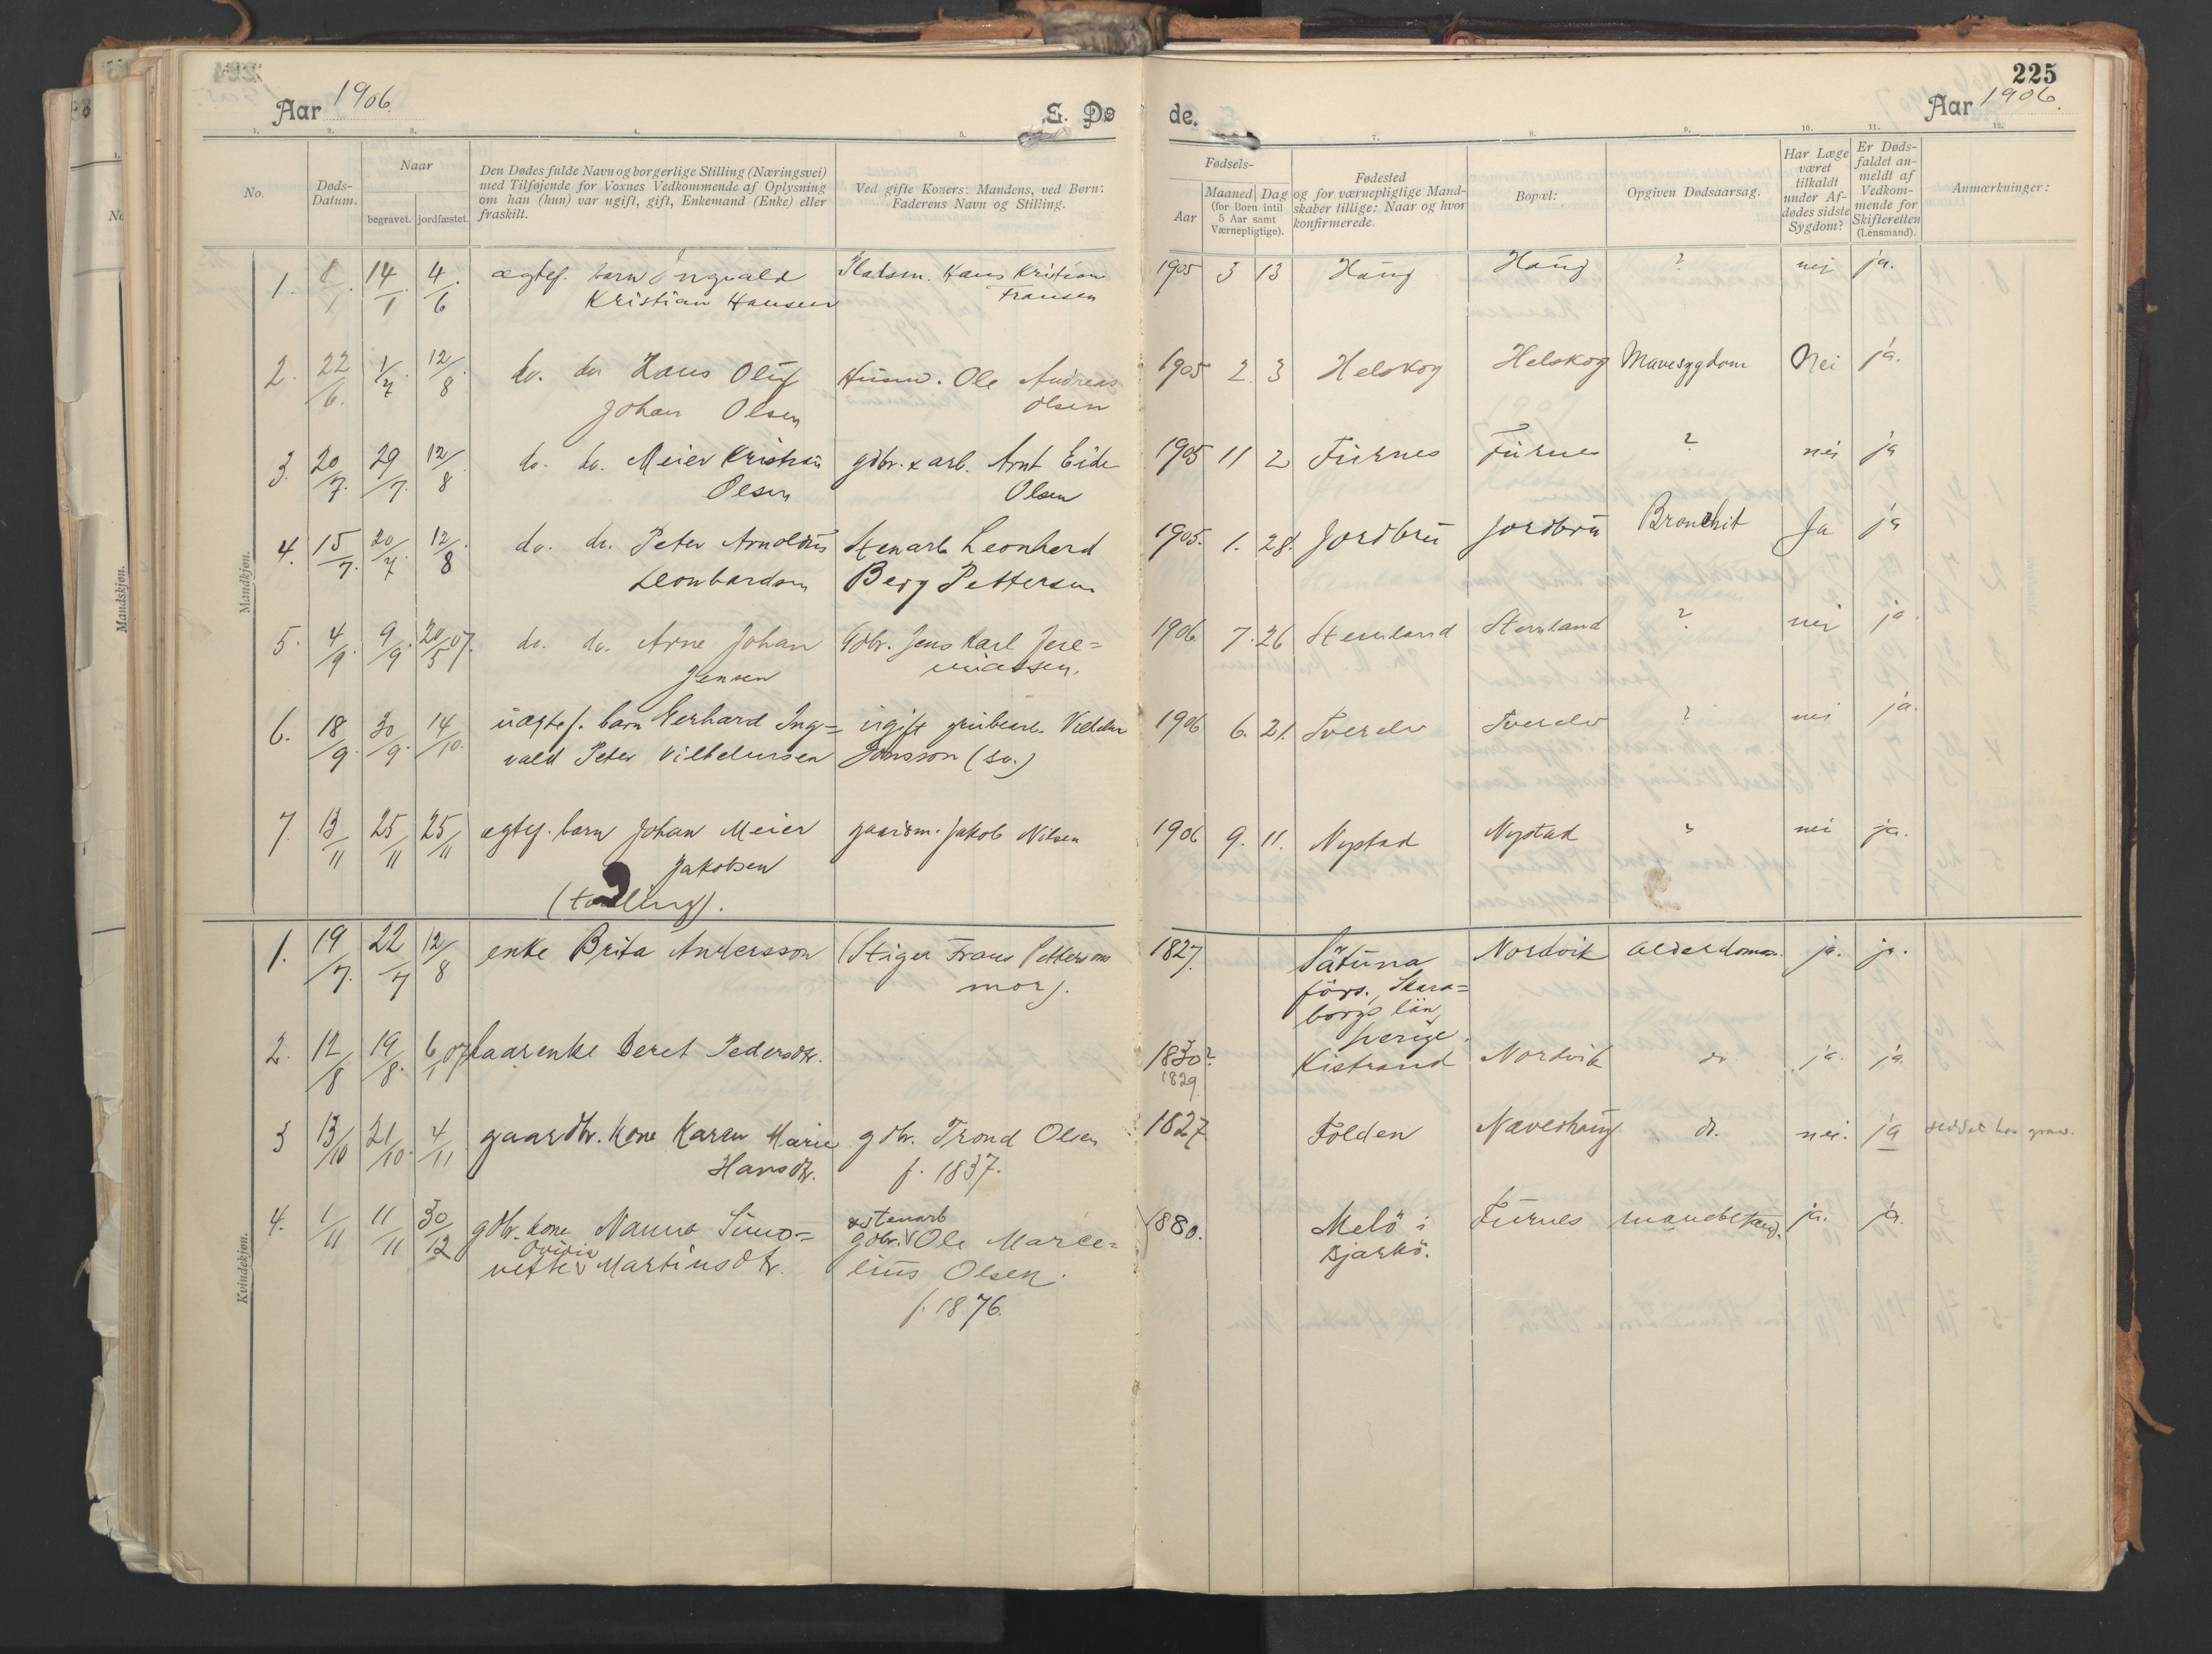 225
Aar 1906.
E. Døde.
Aar 1906.
1. 2. 3. 4. 5. 7. 8. 9. 10. 11. 12.
No.
Døds-
Datum.
Naar
begravet. jordfæstet.
Den Dødes fulde Navn og borgerlige Stilling (Næringsvei)
med Tilføjende for Voxnes Vedkommende af Oplysning
om han (hun) var ugift, gift, Enkemand (Enke) eller
fraskilt.
Ved gifte Koner: Mandens, ved Børn:
Faderens Navn og Stilling.
Fødsels-
Aar
Maaned Dag
(for Børn intil
5 Aar samt
Værnepligtige).
Fødested
og for værnepligtige Mand-
skaber tillige: Naar og hvor
konfirmerede.
Bopæl:
Opgiven Dødsaarsag.
Har Læge
været
tilkaldt
under Af-
dødes sidste
Sygdom?
Er Døds-
faldet an-
meldt af
Vedkom-
mende for
Skifteretten
(Lensmand).
Anmærkninger:
Mandskjøn.
Mandkjøn.
1. 14/1 4/6 ægtef. barn Ingvald Pladsm. Hans Kristian 1905 3 13 Haug Haug ? nei ja.
Kristian Hansen Fransen
2. 22/6. 1/7. 12/8. do. do Hans Oluf Husm. Ole Andreas 1905 2 3 Helskog Helskog Mavesygdom Nei ja.
Johan Olsen Olsen
3. 20/7. 29/7. 12/8 do. do. Meier Kristian gdbr. & arb. Arnt Eide 1905 11 2 Furnes Furnes ? nei ja
Olsen Olsen
4. 15/7. 20/7. 12/8. do. do. Peter Arnoldus Stenarb Leonhard 1905. 1. 28. Jordbru Jordbru Bronchit Ja ja
Leonhardsen Berg Pettersen
5. 4/9. 9/9. 20/5 07. do. do. Arne Johan Gdbr. Jens Karl Jere= 1906 7. 26 Stenland Stenland ? nei ja.
Jensen miassen.
6. 18/9. 30/9. 14/10. uægtef. barn Gerhard Ing= ugift grubearb. Vilhelm 1906 6. 21. Tverelv Tverelv ? nei ja.
vald Peter Vilhelmsen Jonsson (sv.)
7. 13/11 25/11 25/11 ægtef. barn Johan Meier gaardm. Jakob Nilsen 1906 9. 11. Nystad Nystad ? nei ja.
Jakobsen
(tvilling).
Kvindekjøn.
1. 19/7. 22/7 12/8 enke Brita Andersson (Stiger Frans Pettersons 1827. Påtuna Nordvik Alderdomss. ja. ja.
mor). förs., Skara=
borgs län,
Sverige.
2. 12/8 19/8. 6/1 07 kaarenke Beret Pedersdtr. 1830? Kistrand Nordvik do ja. ja.
1829.
3 13/10 21/10. 4/11 gaardbr. kone Karen Marie gdbr. Trond Olsen 1827 Folden Næveshaug do. nei. ja
Hansdtr. f. 1837.
4. 1/11 11/11 30/12 gdbr. kone Nanna Simo= & stenarb 1880. Melö i Furnes ja. ja.
Ovidie gdbr. Ole Marce= Bjarkö.
nette Martinsdtr. lius Olsen.
f. 1876.